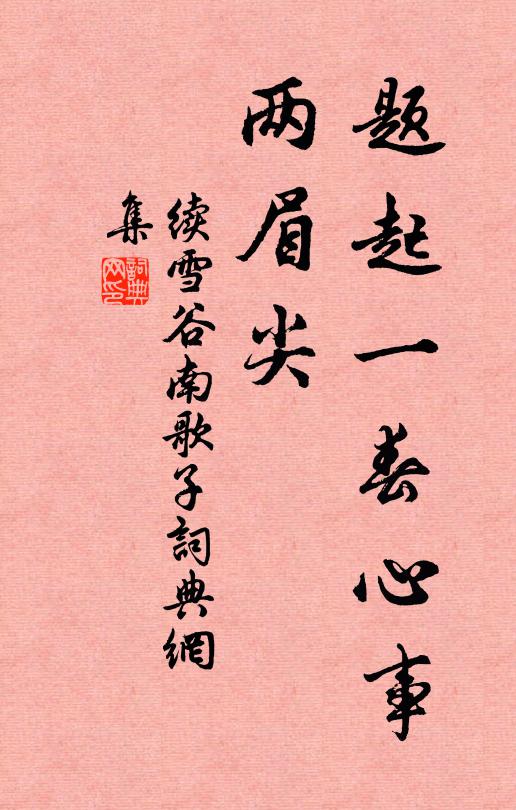 题起一春心事
两眉尖
续雪谷南歌子詞典網
集
詞典
网印